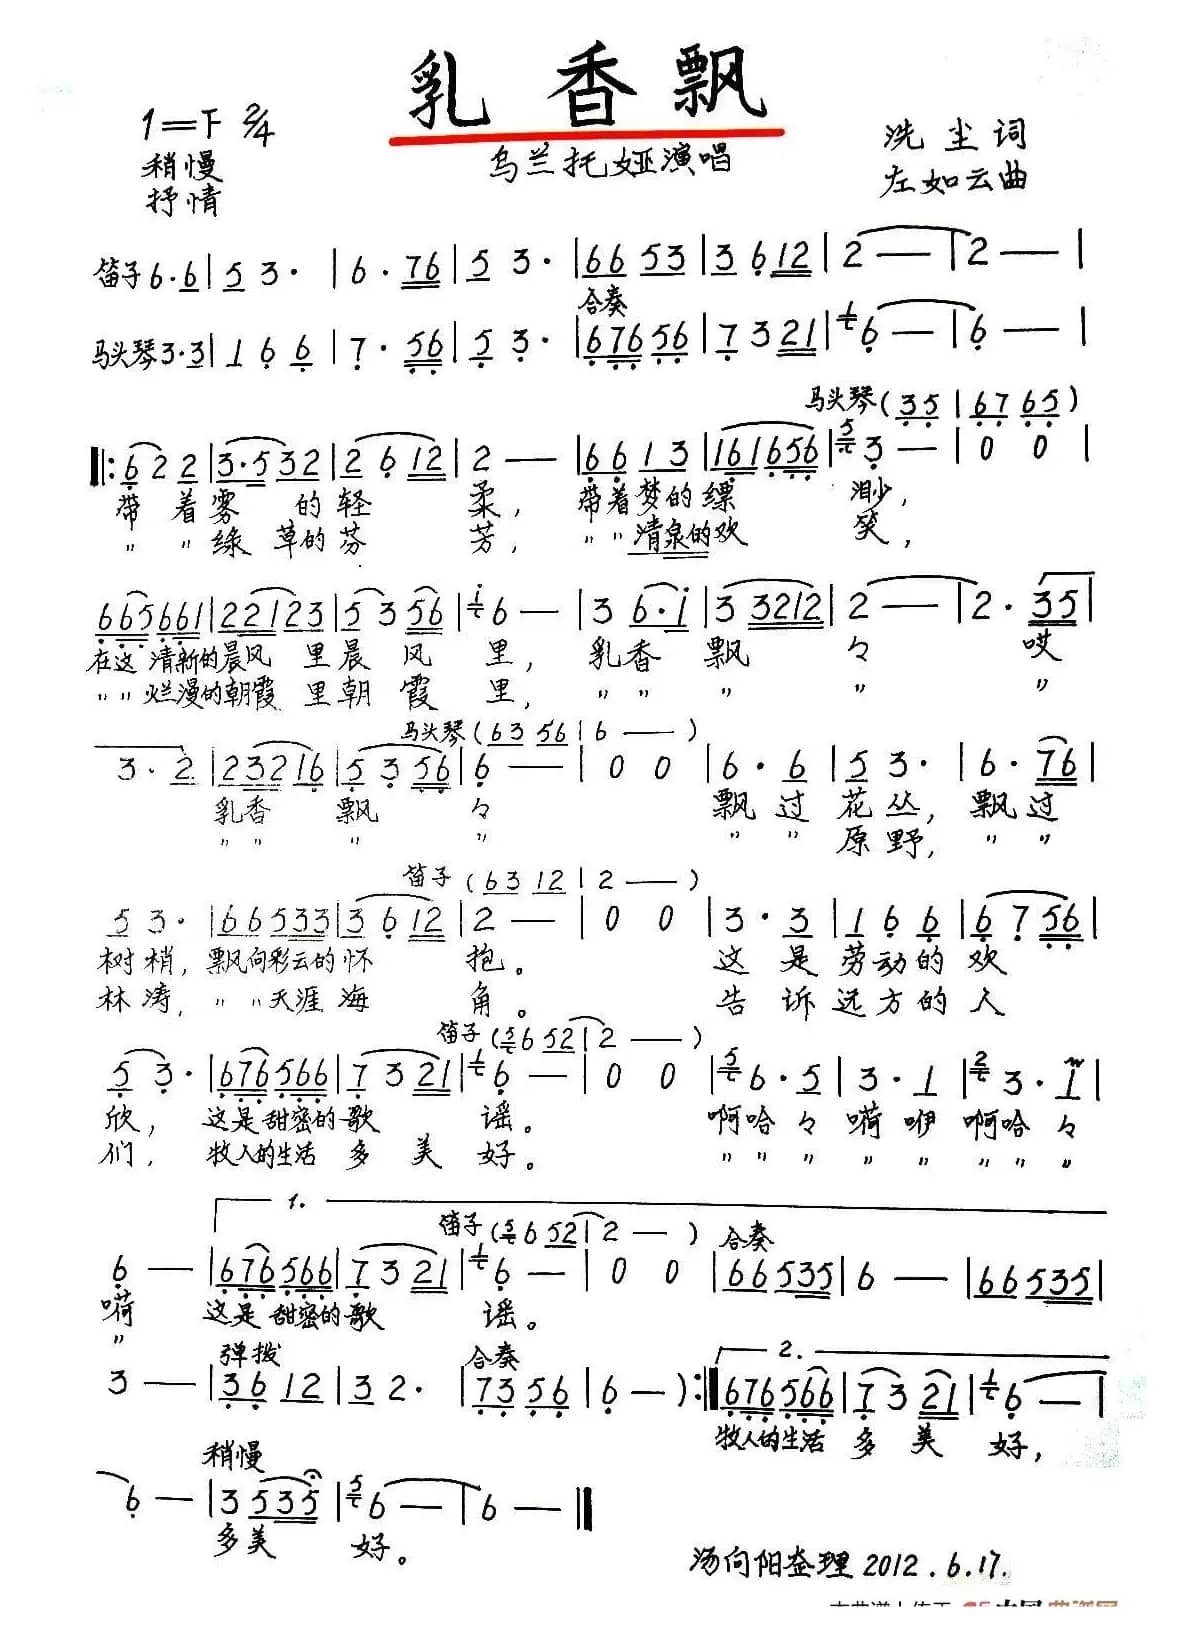 乳香飘
1=F 2/4
稍慢
抒情
乌兰托娅演唱
洗尘词
左如云曲
笛子 6·6 | 5 3· | 6·76 | 5 3· | 6653 | 3 6 12 | 2 — | 2 — |
合奏
马头琴 3·3 | 1 6 6 | 7·56 | 5 3· | 67656 | 7 3 21 | 6 — | 6 — |
马头琴 (35 | 67 65)
‖: 6 2 2 | 3·5 32 | 2 6 12 | 2 — | 6613 | 161656 | 3 — | 0 0 |
带着雾的轻柔,带着梦的缥渺,
〃〃绿草的芬芳,〃〃清泉的欢笑,
665661 | 22123 | 5 3 56 | 6 — | 3 6·i | 3 3212 | 2 — | 2· 35 |
在这清新的晨风里晨风里,乳香飘々哎
〃〃烂漫的朝霞里朝霞里,〃〃〃〃〃
马头琴 (63 56 | 6 —)
3·2 | 23216 | 5 3 56 | 6 — | 0 0 | 6·6 | 5 3· | 6·76 |
乳香飘々飘过花丛,飘过
〃〃〃〃〃〃原野,〃〃
笛子 (63 12 | 2 —)
5 3· | 66533 | 3 6 12 | 2 — | 0 0 | 3·3 | 1 6 6 | 6 7 56 |
树梢,飘向彩云的怀抱。这是劳动的欢
林涛,〃〃天涯海角。告诉远方的人
笛子 (6 52 | 2 —)
5 3· | 676566 | 7 3 21 | 6 — | 0 0 | 6·5 | 3·1 | 3·1 |
欣,这是甜蜜的歌谣。啊哈々嗬咿啊哈々
们,牧人的生活多美好。〃〃〃〃〃〃〃〃
1.
笛子 (6 52 | 2 —) 合奏
6 — | 676566 | 7 3 21 | 6 — | 0 0 | 66535 | 6 — | 66535 |
嗬这是甜密的歌谣。
〃
弹拨 合奏 2.
3 — | 36 12 | 3 2· | 7356 | 6 —) :‖ 676566 | 7 3 21 | 6 — |
牧人的生活多美好,
稍慢
6 — | 3 535 | 6 — | 6 — ‖
多美好。
汤向阳整理 2012.6.17.